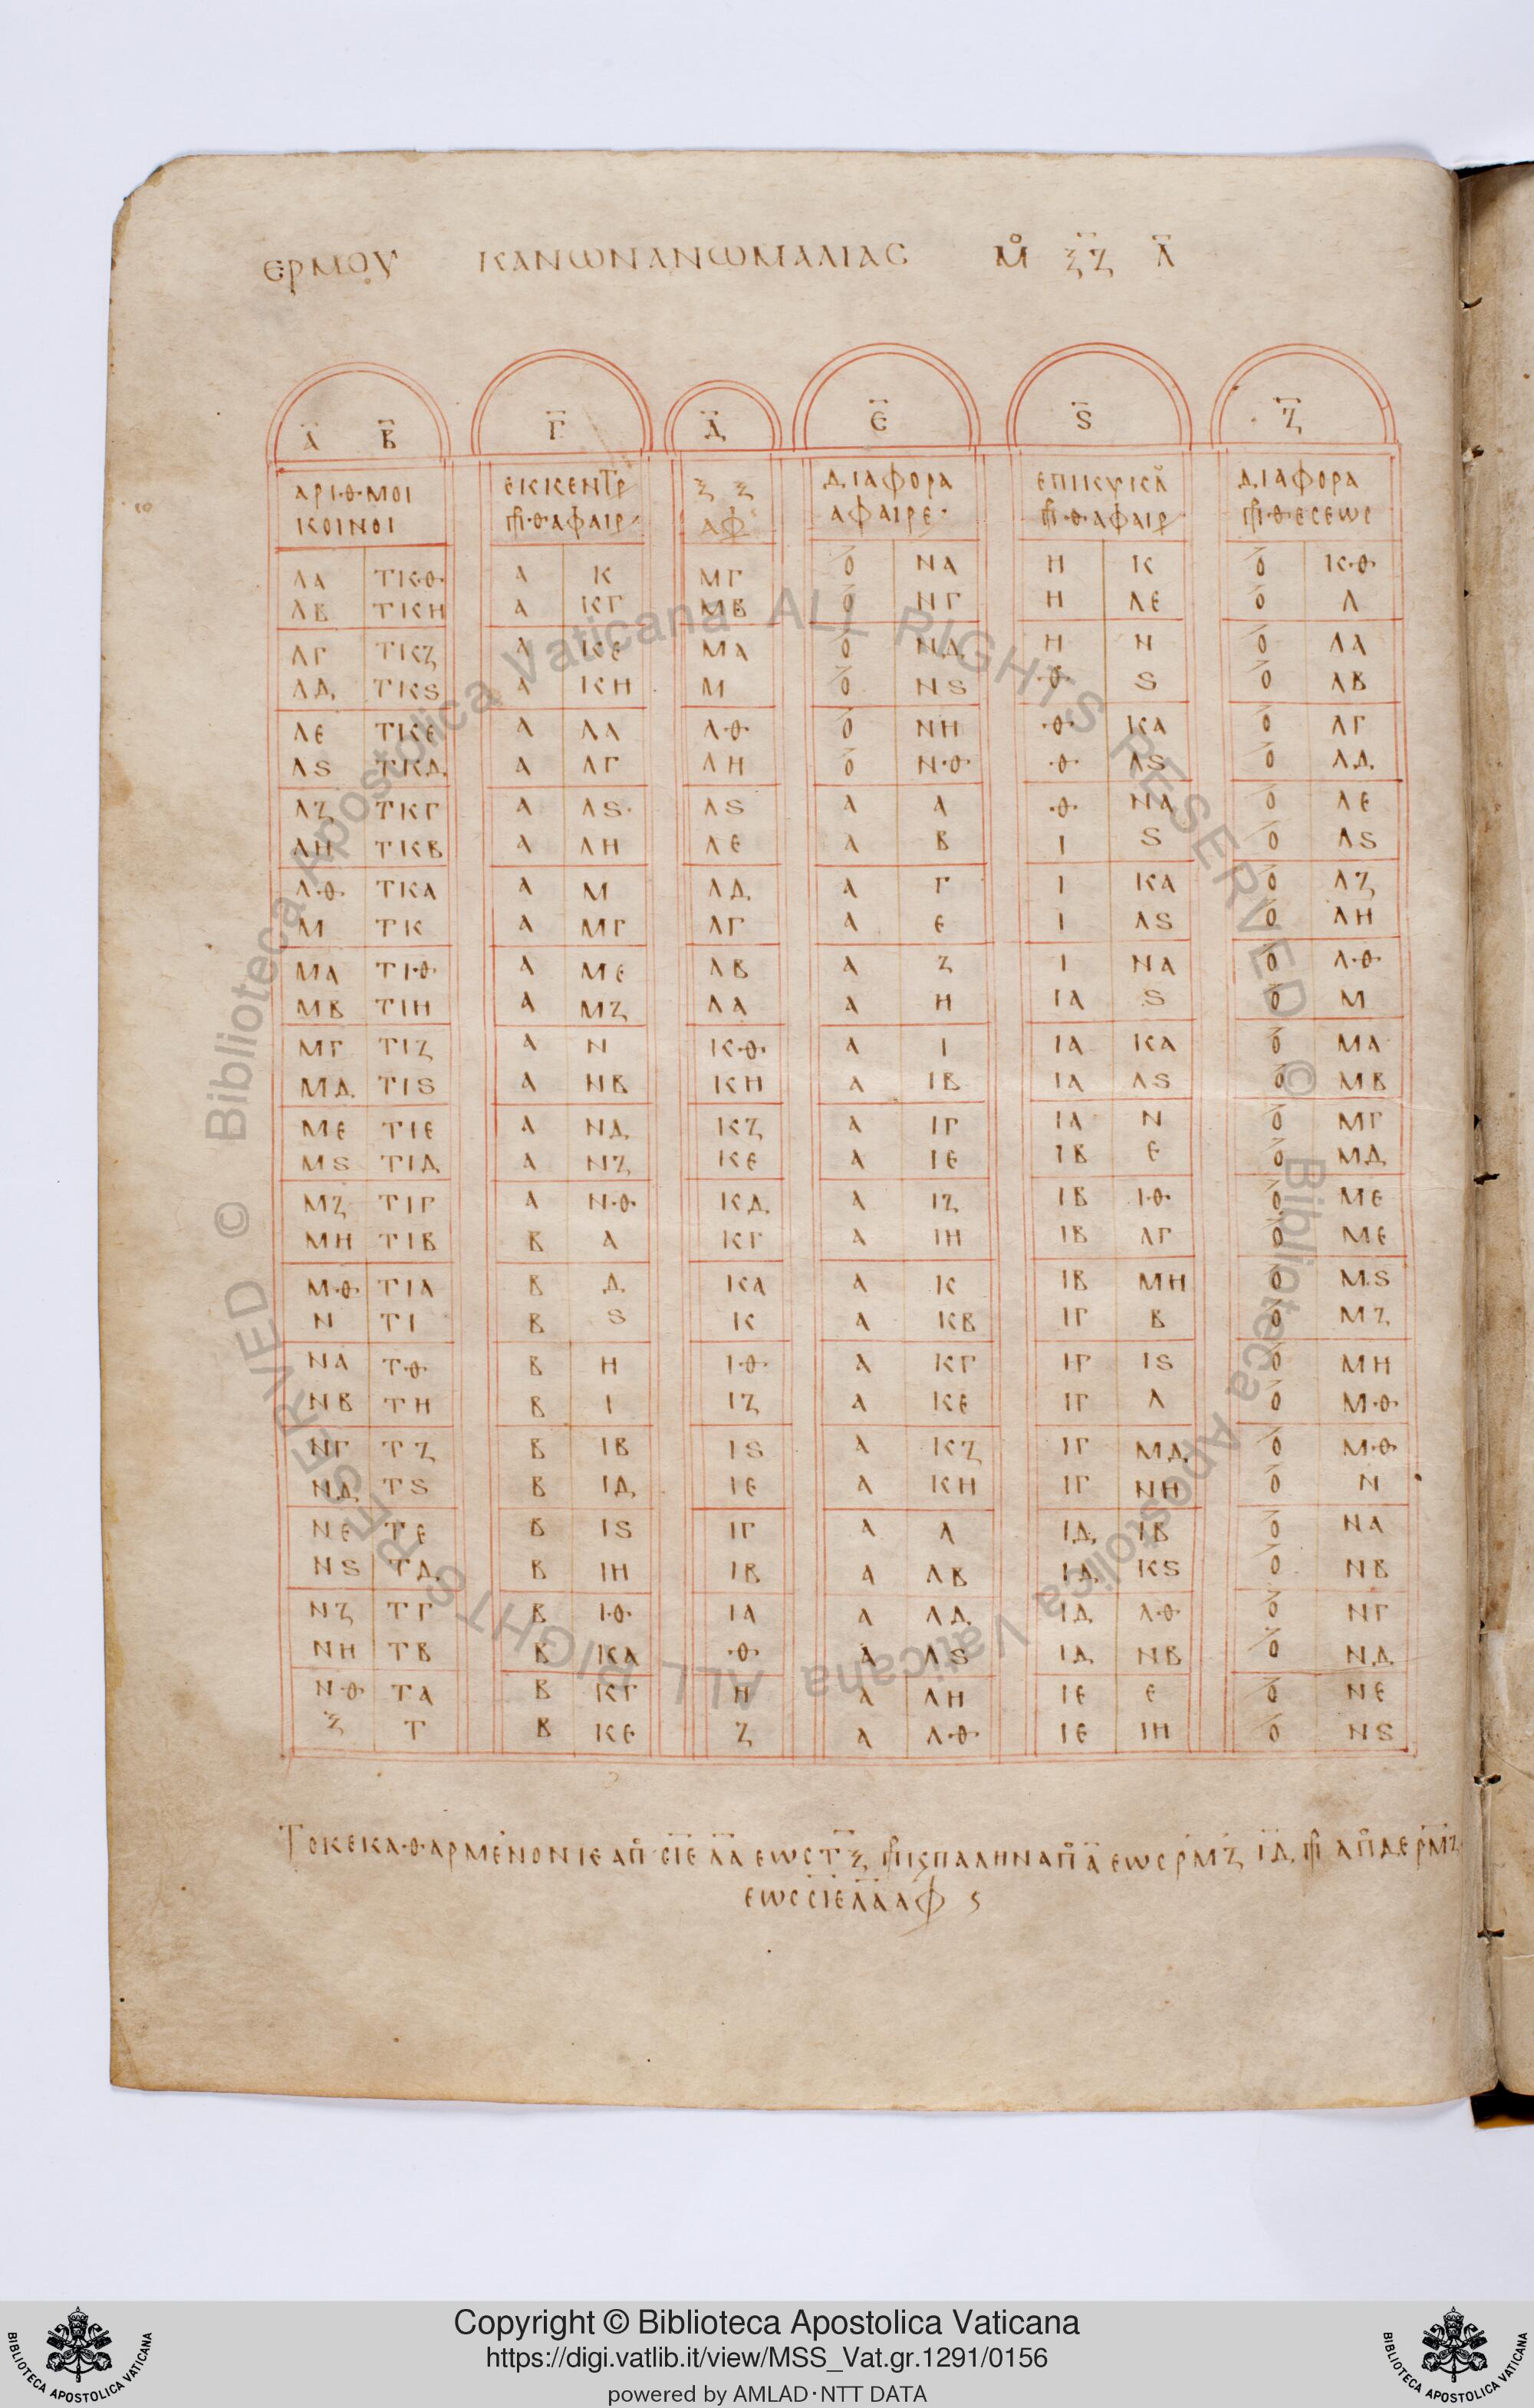 ΕΡΜΟΥ ΚΑΝΩΝ ΑΝΩΜΑΛΙΑС Μο ΞΖ Λ
Α Β Γ Δ Ε S Ζ
ΑΡΙΘΜΟΙ ΕΚΚΕΝΤΡ Ξ Ξ ΔΙΑΦΟΡΑ ΕΠΙΚΥΚΛ ΔΙΑΦΟΡΑ
ΚΟΙΝΟΙ ΠΡΘΑΦΑΙΡ ΑΦ ΑΦΑΙΡΕ ΠΡΘΑΦΑΙΡ ΠΡΘΕСΕΩС
ΛΑ ΤΚΘ Α Κ ΜΓ Ο ΝΑ Η Κ Ο ΚΘ
ΛΒ ΤΚΗ Α ΚΓ ΜΒ Ο ΝΓ Η ΛΕ Ο Λ
ΛΓ ΤΚΖ Α ΚΕ ΜΑ Ο ΝΔ Η Ν Ο ΛΑ
ΛΔ ΤΚS Α ΚΗ Μ Ο ΝS Θ S Ο ΛΒ
ΛΕ ΤΚΕ Α ΛΑ ΛΘ Ο ΝΗ Θ ΚΑ Ο ΛΓ
ΛS ΤΚΔ Α ΛΓ ΛΗ Ο ΝΘ Θ ΛS Ο ΛΔ
ΛΖ ΤΚΓ Α ΛS ΛS Α Α Θ ΝΑ Ο ΛΕ
ΛΗ ΤΚΒ Α ΛΗ ΛΕ Α Β Ι S Ο ΛS
ΛΘ ΤΚΑ Α Μ ΛΔ Α Γ Ι ΚΑ Ο ΛΖ
Μ ΤΚ Α ΜΓ ΛΓ Α Ε Ι ΛS Ο ΛΗ
ΜΑ ΤΙΘ Α ΜΕ ΛΒ Α Ζ Ι ΝΑ Ο ΛΘ
ΜΒ ΤΙΗ Α ΜΖ ΛΑ Α Η ΙΑ S Ο Μ
ΜΓ ΤΙΖ Α Ν ΚΘ Α Ι ΙΑ ΚΑ Ο ΜΑ
ΜΔ ΤΙS Α ΝΒ ΚΗ Α ΙΒ ΙΑ ΛS Ο ΜΒ
ΜΕ ΤΙΕ Α ΝΔ ΚΖ Α ΙΓ ΙΑ Ν Ο ΜΓ
ΜS ΤΙΔ Α ΝΖ ΚΕ Α ΙΕ ΙΒ Ε Ο ΜΔ
ΜΖ ΤΙΓ Α ΝΘ ΚΔ Α ΙΖ ΙΒ ΙΘ Ο ΜΕ
ΜΗ ΤΙΒ Β Α ΚΓ Α ΙΗ ΙΒ ΛΓ Ο ΜΕ
ΜΘ ΤΙΑ Β Δ ΚΑ Α Κ ΙΒ ΜΗ Ο ΜS
Ν ΤΙ Β S Κ Α ΚΒ ΙΓ Β Ο ΜΖ
ΝΑ ΤΘ Β Η ΙΘ Α ΚΓ ΙΓ ΙS Ο ΜΗ
ΝΒ ΤΗ Β Ι ΙΖ Α ΚΕ ΙΓ Λ Ο ΜΘ
ΝΓ ΤΖ Β ΙΒ ΙS Α ΚΖ ΙΓ ΜΔ Ο ΜΘ
ΝΔ ΤS Β ΙΔ ΙΕ Α ΚΗ ΙΓ ΝΗ Ο Ν
ΝΕ ΤΕ Β ΙS ΙΓ Α Λ ΙΔ ΙΒ Ο ΝΑ
ΝS ΤΔ Β ΙΗ ΙΒ Α ΛΒ ΙΔ ΚS Ο ΝΒ
ΝΖ ΤΓ Β ΙΘ ΙΑ Α ΛΔ ΙΔ ΛΘ Ο ΝΓ
ΝΗ ΤΒ Β ΚΑ Θ Α ΛS ΙΔ ΝΒ Ο ΝΔ
ΝΘ ΤΑ Β ΚΓ Η Α ΛΗ ΙΕ Ε Ο ΝΕ
Ξ Τ Β ΚΕ Ζ Α ΛΘ ΙΕ ΙΗ Ο ΝS
ΤΟ ΚΕΚΑΘΑΡΜΕΝΟΝ ΙΕ ΑΠ СΙΕ ΛΑ ΕΩС ΤΞ ΠΑΛΗΝ ΑΠ Α ΕΩС ΡΜΖ ΙΔ ΑΠ ΔΕ ΡΜΖ
ΕΩС СΙΕ ΛΑ ΑΦ S
Copyright © Biblioteca Apostolica Vaticana
https://digi.vatlib.it/view/MSS_Vat.gr.1291/0156
powered by AMLAD·NTT DATA
BIBLIOTECA APOSTOLICA VATICANA
BIBLIOTECA APOSTOLICA VATICANA
© Biblioteca Apostolica Vaticana ALL RIGHTS RESERVED © Biblioteca Apostolica Vaticana ALL RIGHTS RESERVED